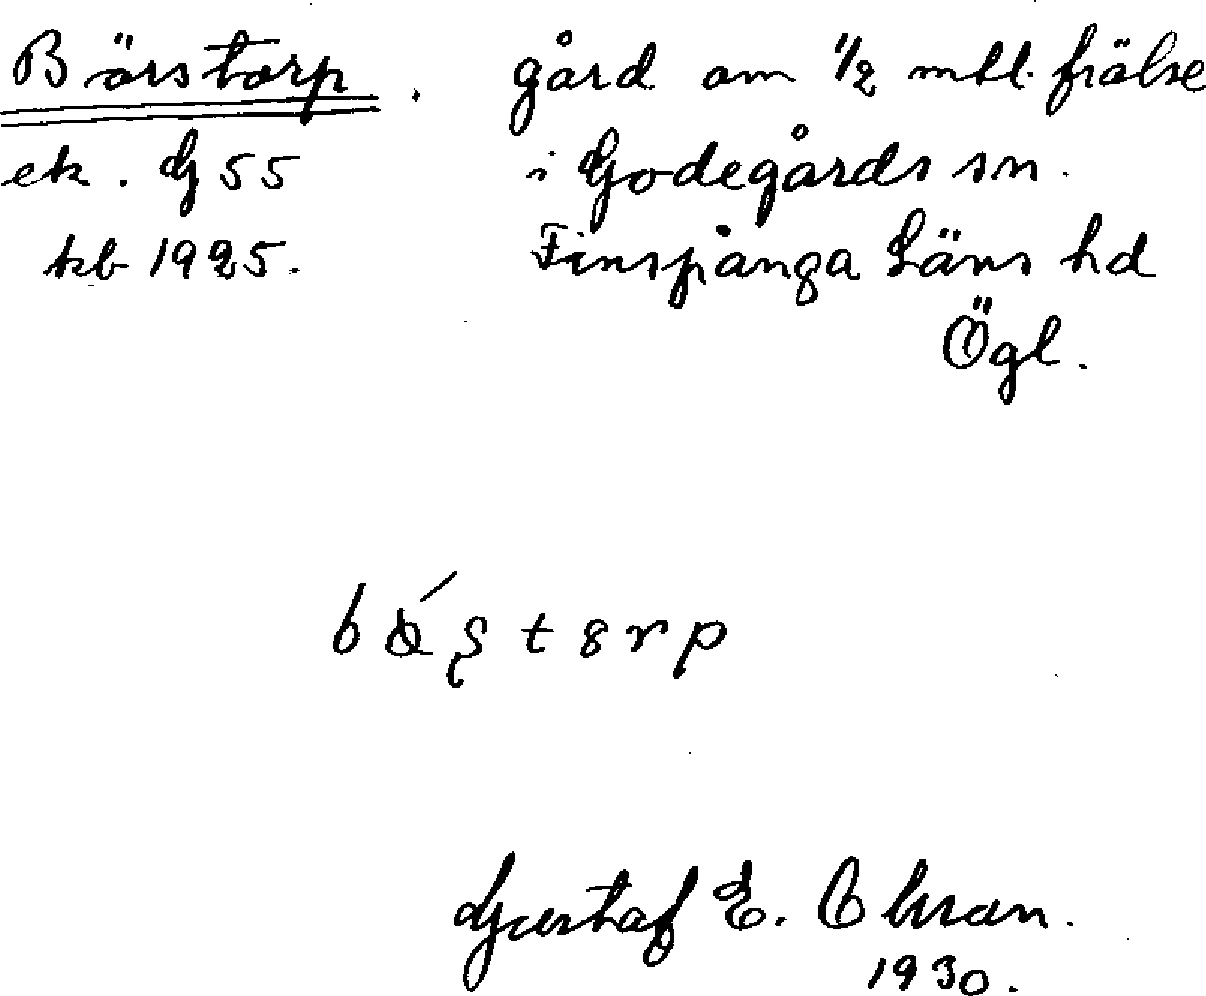 Börstorp. gård om 1/2 mtl. frälse
ek. G 55 i Godegårds sn.
kb 1925. Finspånga Läns hd
Ögl.
Gustaf E.
1930.